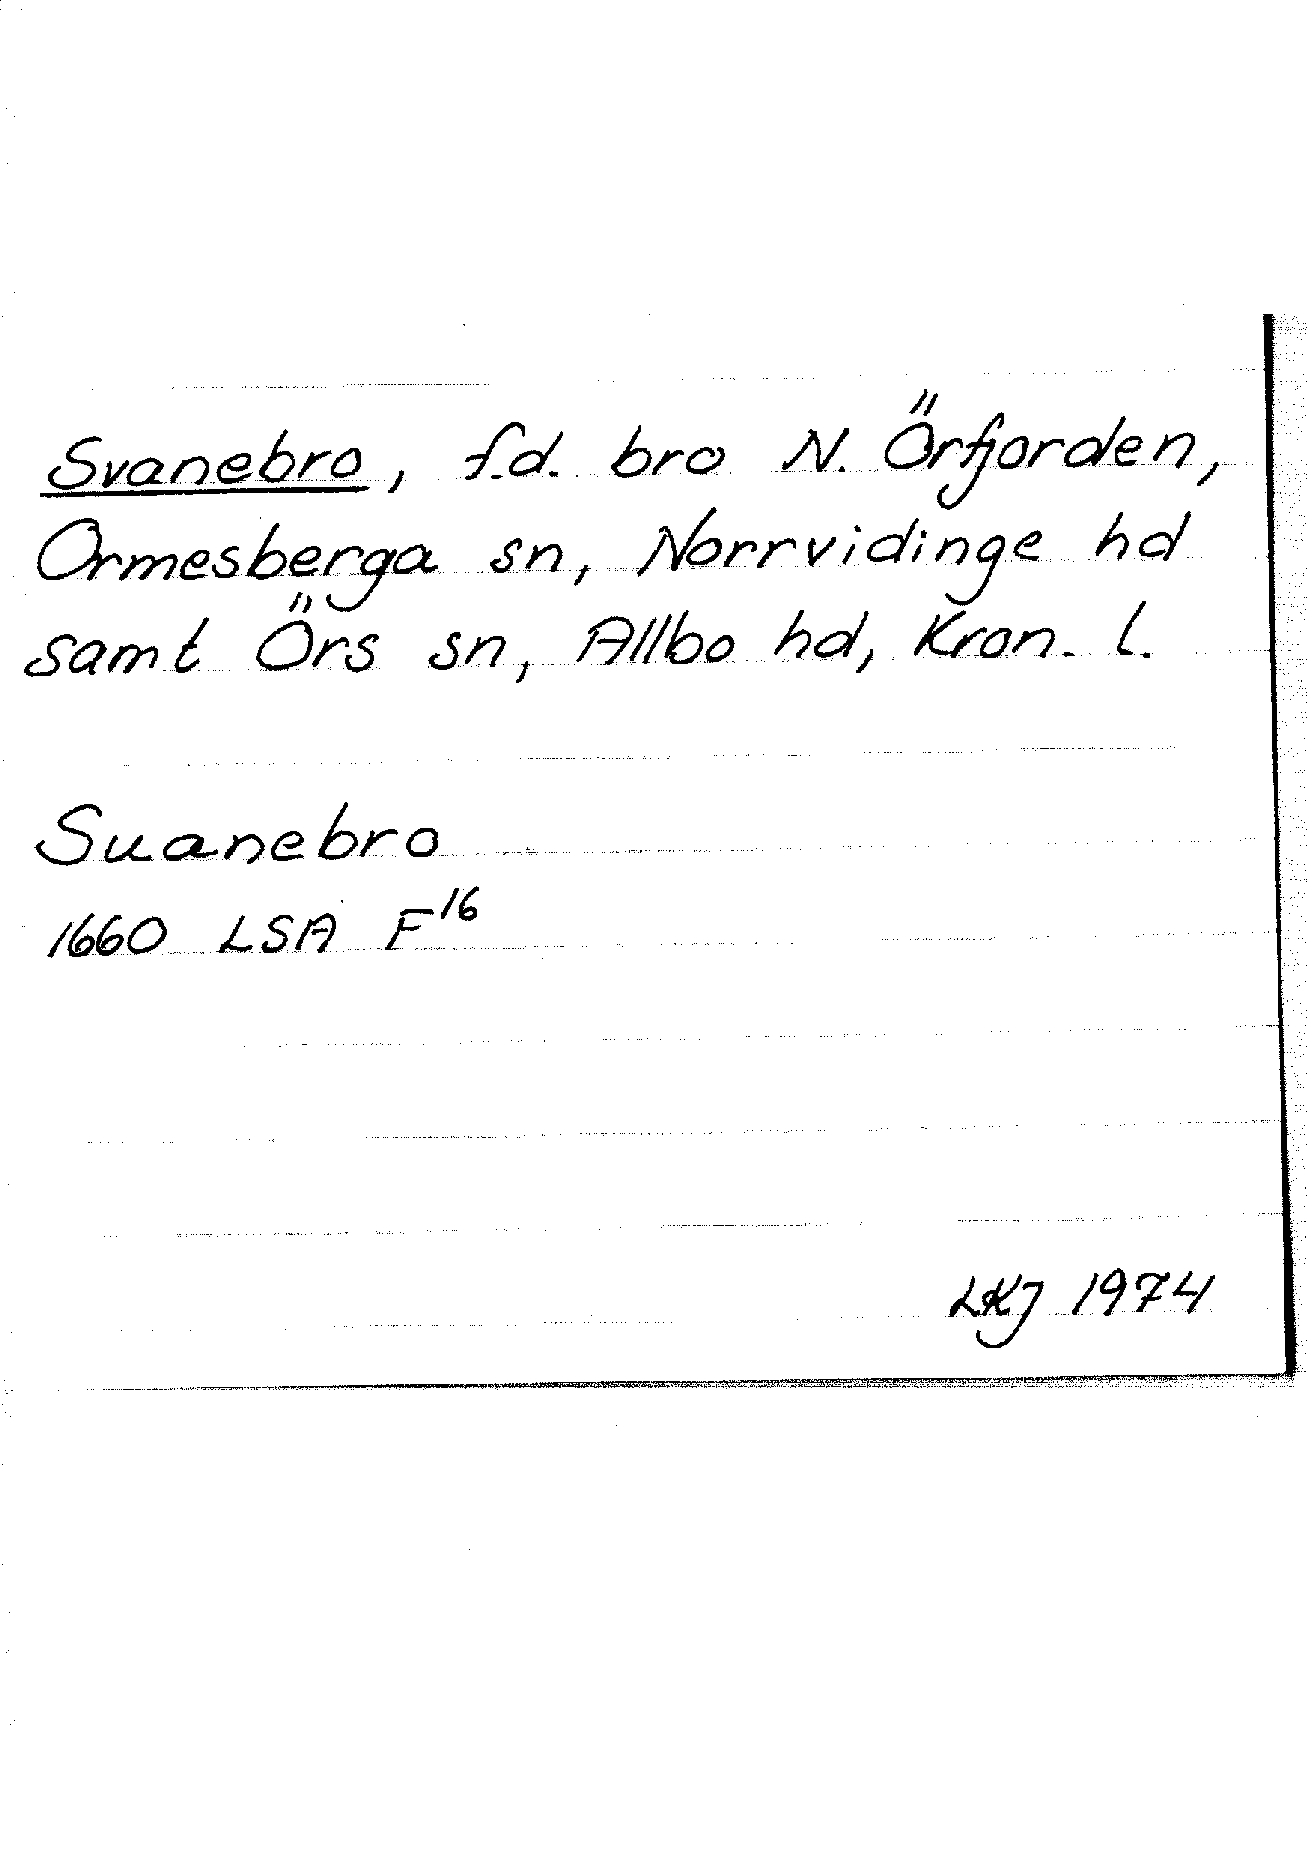 Svanebro, f.d. bro N. Örfjorden,
Ormesberga sn, Norrvidinge hd
samt Örs sn, Allbo hd, Kron. l.
Suanebro
1660 LSA F¹⁶
LKJ 1974